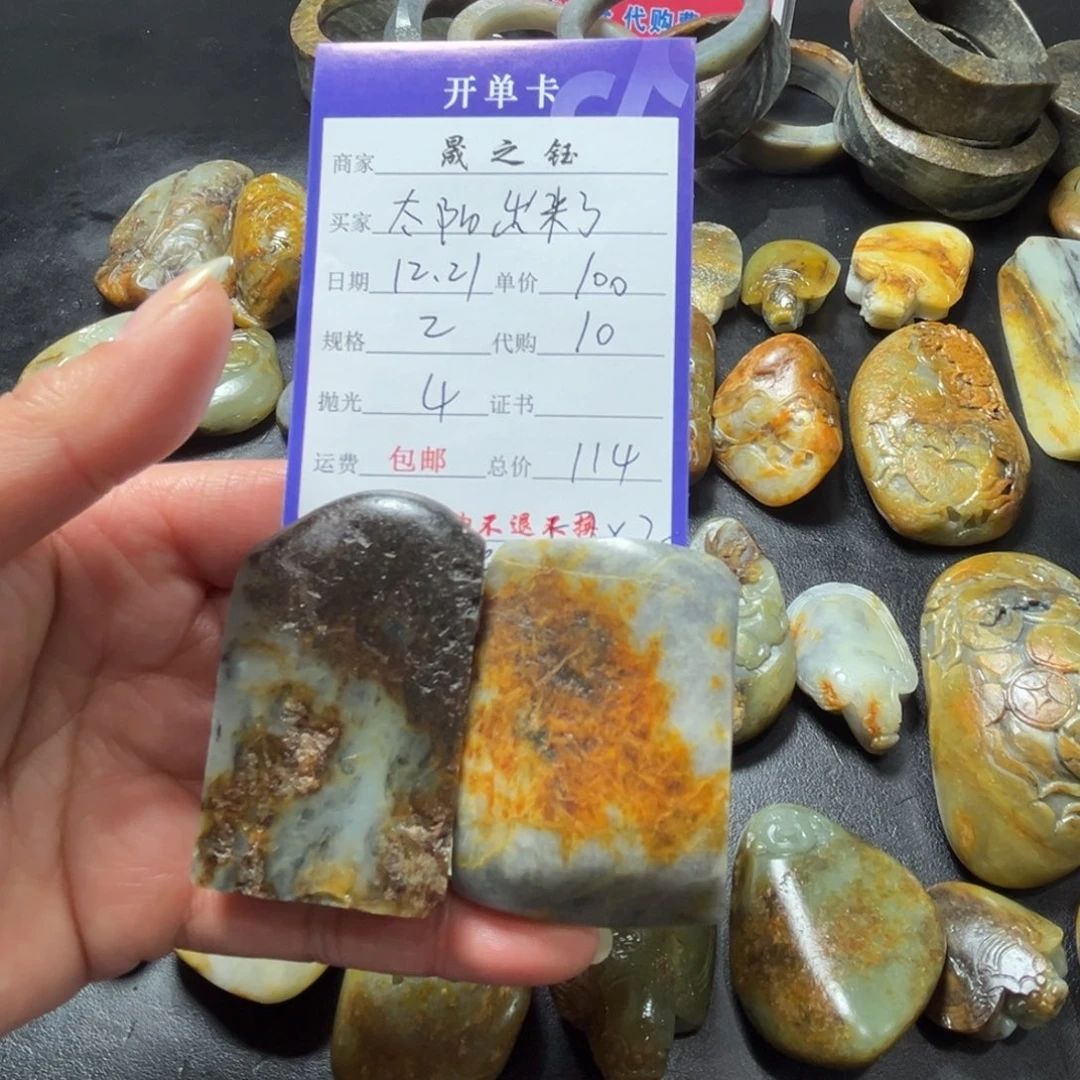 代购费
开单卡
商家 晟之钰
买家 太阳出来了
日期 12.21 单价 100
规格 2 代购 10
抛光 4 证书
运费 包邮 总价 114
不退不换 x2